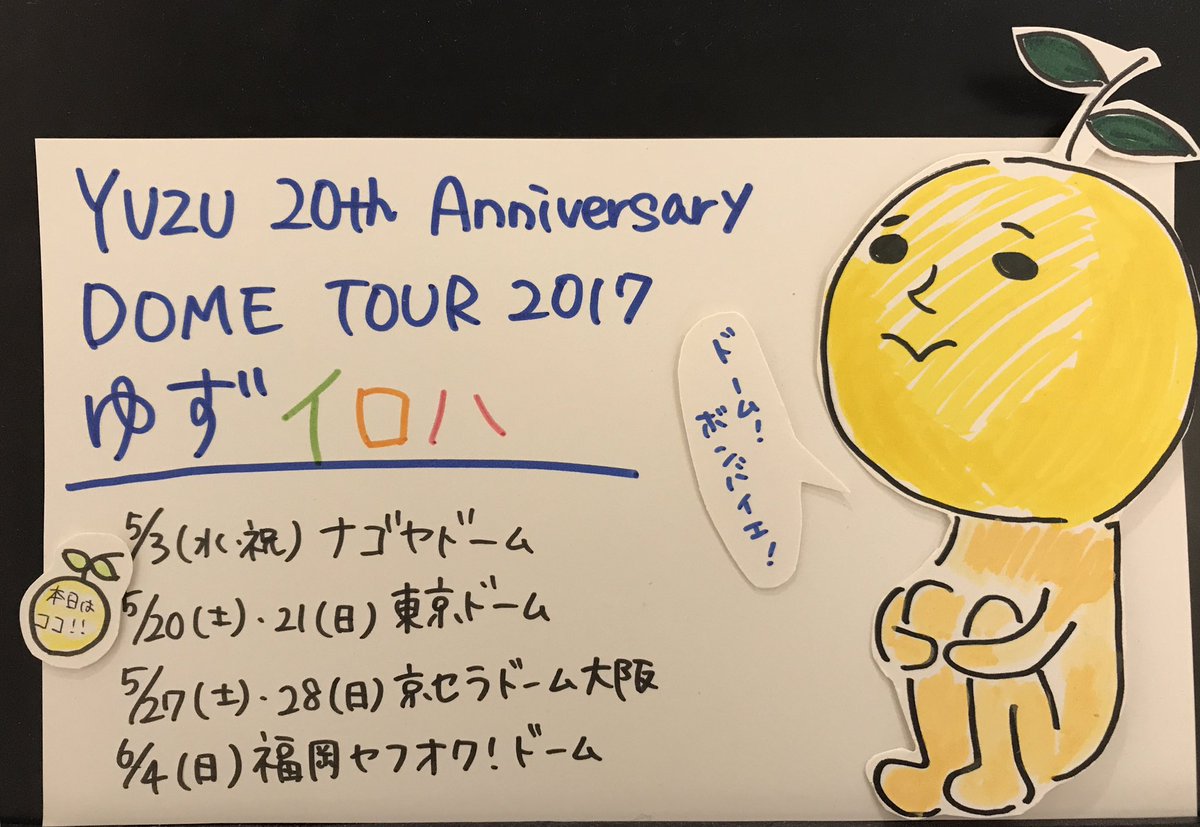 YUZU 20th Anniversary
DOME TOUR 2017
ゆず イロハ
ドーム!
ボンバイエ!
5/3(水・祝) ナゴヤドーム
本日は
ココ!!
5/20(土)・21(日) 東京ドーム
5/27(土)・28(日) 京セラドーム大阪
6/4(日) 福岡ヤフオク!ドーム